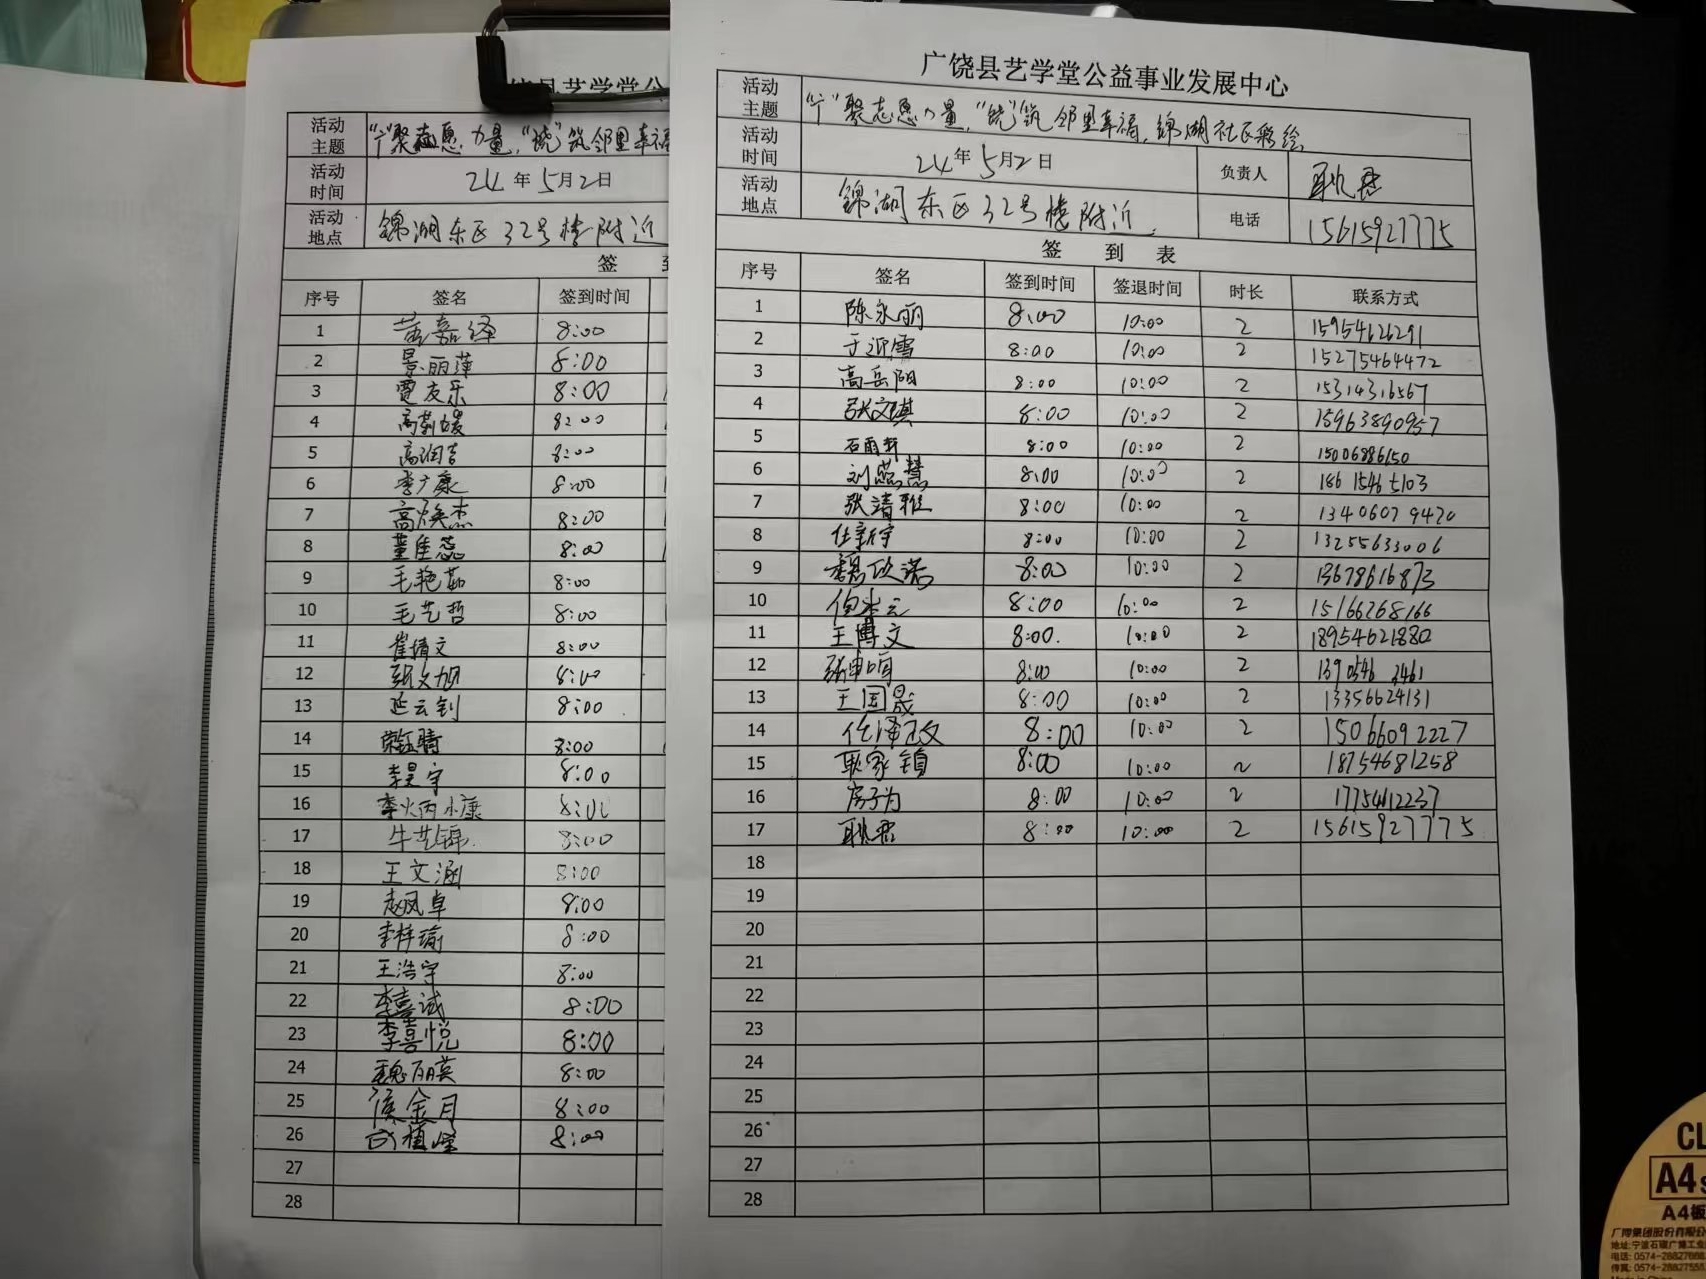 广饶县艺学堂公
活动主题 “广”聚志愿力量,“饶”筑邻里幸福
活动时间 24年5月2日
活动地点 锦湖东区32号楼附近
签
序号 签名 签到时间
1 8:00
2 景丽萍 8:00
3 贾友乐 8:00
4 8:00
5 高润吉 8:00
6 李广康 8:00
7 高焕杰 8:00
8 董佳蕊 8:00
9 毛艳茹 8:00
10 毛艺哲 8:00
11 崔倩文 8:00
12 8:00
13 延云钊 8:00
14 荣钰晴 8:00
15 李昊宇 8:00
16 8:00
17 牛艺锦 8:00
18 王文涵 8:00
19 赵凤卓 8:00
20 李梓瑜 8:00
21 王浩宇 8:00
22 李喜诚 8:00
23 李喜悦 8:00
24 魏丽英 8:00
25 侯金月 8:00
26 8:00
27
28
广饶县艺学堂公益事业发展中心
活动主题 “广”聚志愿力量,“饶”筑邻里幸福,锦湖社区彩绘
活动时间 24年5月2日 负责人 耿君
活动地点 锦湖东区32号楼附近. 电话 15615927775
签 到 表
序号 签名 签到时间 签退时间 时长 联系方式
1 陈永丽 8:00 10:00 2 15954626291
2 于近雪 8:00 10:00 2 15275464472
3 高岳阳 8:00 10:00 2 15314316567
4 张文琪 8:00 10:00 2 15963890957
5 石雨轩 8:00 10:00 2 15006886150
6 刘蕊慧 8:00 10:00 2 18615465103
7 张清雅 8:00 10:00 2 13406079470
8 任新宇 8:00 10:00 2 13255633006
9 魏欣诺 8:00 10:00 2 13678616873
10 8:00 10:00 2 15166268166
11 王博文 8:00. 10:00 2 18954621880
12 8:00 10:00 2 1390546 3461
13 王国晟 8:00 10:00 2 13356624131
14 任泽政 8:00 10:00 2 15066092227
15 耿家镇 8:00 10:00 2 18754681258
16 房子为 8:00 10:00 2 17754612237
17 耿君 8:00 10:00 2 15615927775
18
19
20
21
22
23
24
25
26
27
28
CL
A4
A4板
广博集团股份有限公
地址:宁波石碶广博工业
电话:0574-2882766
传真:0574-2882755